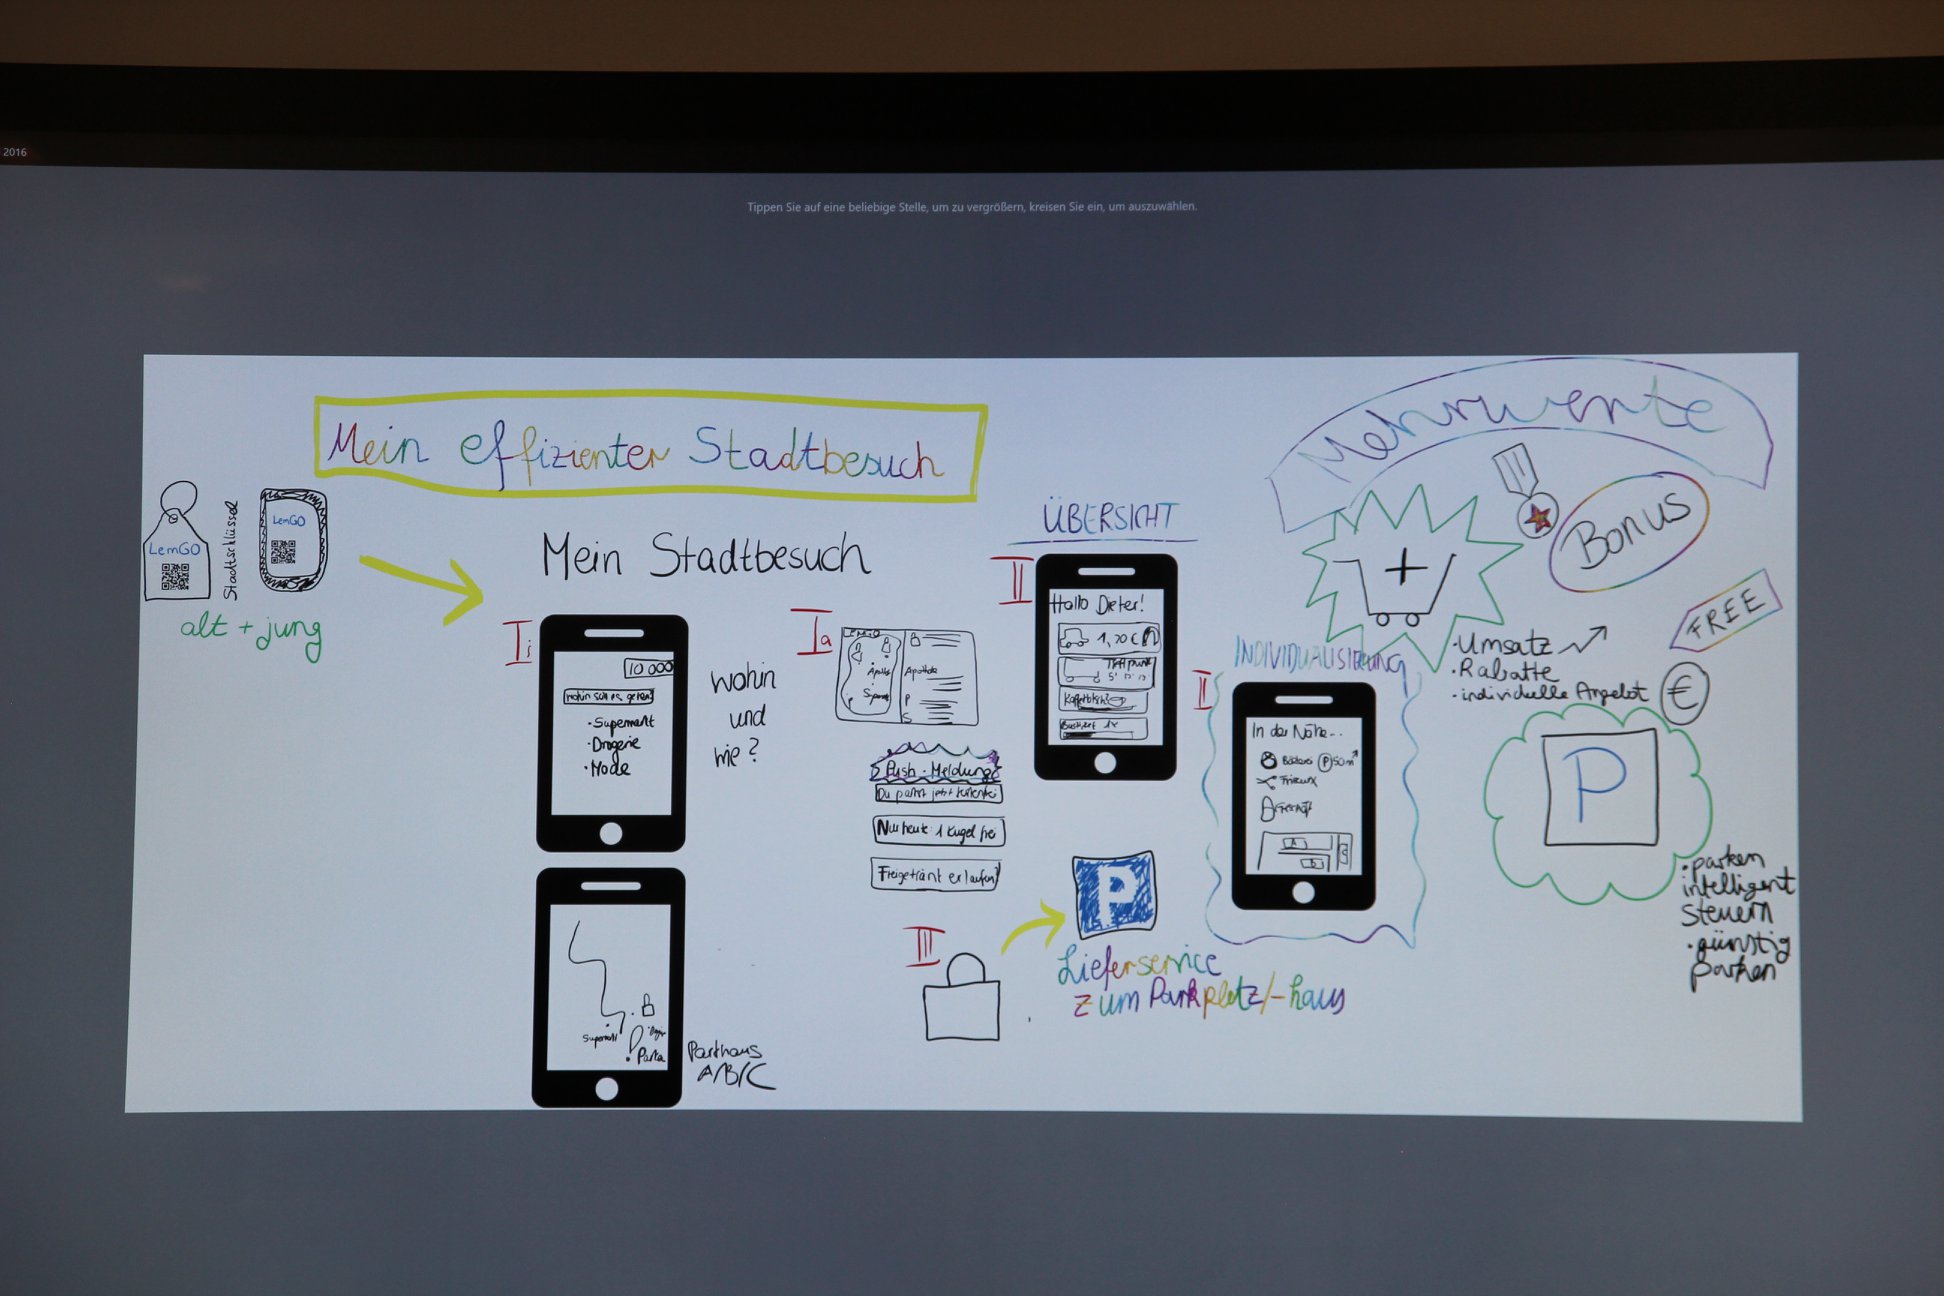 2016
Tippen Sie auf eine beliebige Stelle, um zu vergrößern, kreisen Sie ein, um auszuwählen.
Mein effizienter Stadtbesuch
LemGO
Stadtschlüssel
LemGO
alt + jung
Mein Stadtbesuch
I
10 000
wohin soll es gehen?
· Supermarkt
· Drogerie
· Mode
wohin
und
wie?
Supermarkt
Parkhaus
A/B/C
Ia
Apotheke
P
S
Push-Meldung
Du parkst jetzt kostenfrei
Nur heute: 1 Kugel frei
Freigetränk erlaufen?
ÜBERSICHT
II
Hallo Dieter!
1,20 €
Treffpunkt
Busticket 1x
III
P
Lieferservice
zum Parkplatz/-haus
INDIVIDUALISIERUNG
II
In der Nähe...
Bäckerei P 50m
Friseur
Geschäft
Mehrwerte
Bonus
FREE
+
· Umsatz
· Rabatte
· individuelle Angebot
€
P
· parken
intelligent
steuern
· günstig
parken